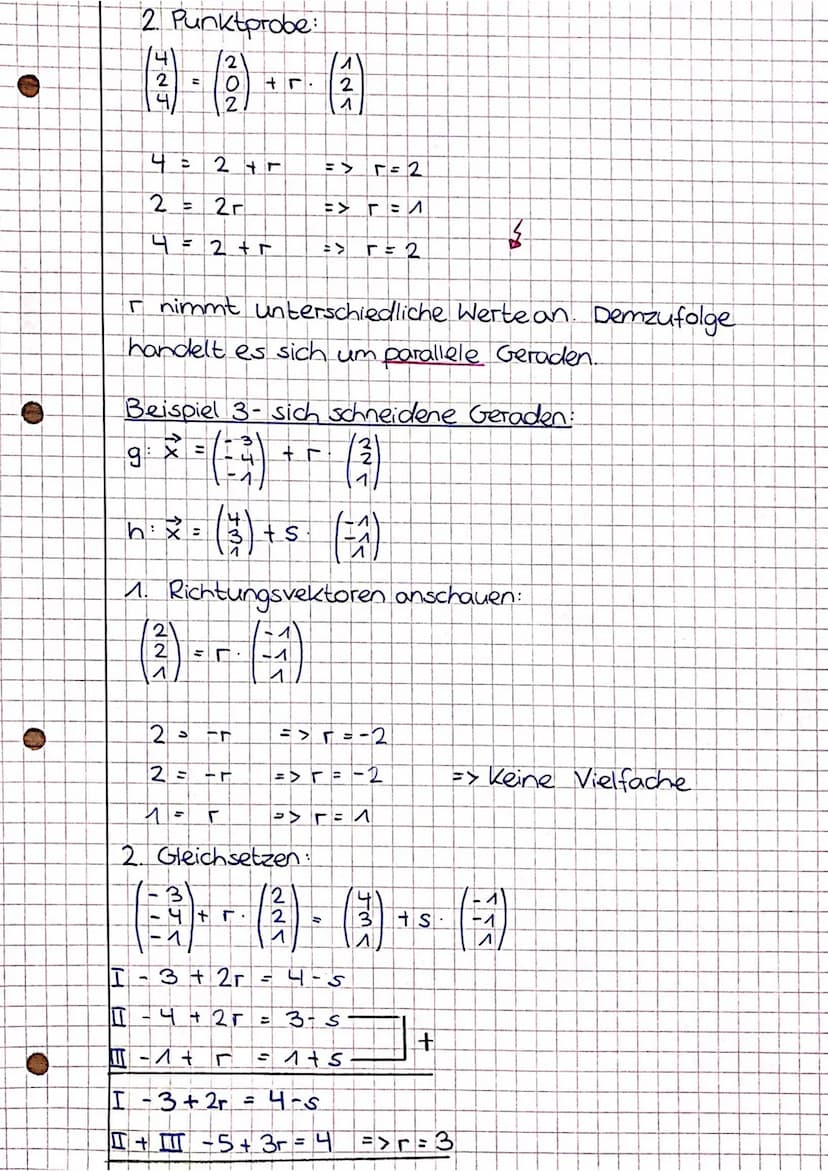 2. Punktprobe:
(4 2 4) = (2 0 2) + r · (1 2 1)
4 = 2 + r => r = 2
2 = 2r => r = 1
4 = 2 + r => r = 2 ↯
r nimmt unterschiedliche Werte an. Demzufolge
handelt es sich um parallele Geraden.
Beispiel 3 - sich schneidene Geraden:
g: x⃗ = (-3 -4 -1) + r · (2 2 1)
h: x⃗ = (4 3 1) + s · (-1 -1 1)
1. Richtungsvektoren anschauen:
(2 2 1) = r · (-1 -1 1)
2 = -r => r = -2
2 = -r => r = -2 => Keine Vielfache
1 = r => r = 1
2. Gleichsetzen:
(-3 -4 -1) + r · (2 2 1) = (4 3 1) + s · (-1 -1 1)
I -3 + 2r = 4 - s
II -4 + 2r = 3 - s
+
III -1 + r = 1 + s
I -3 + 2r = 4 - s
II + III -5 + 3r = 4 => r = 3